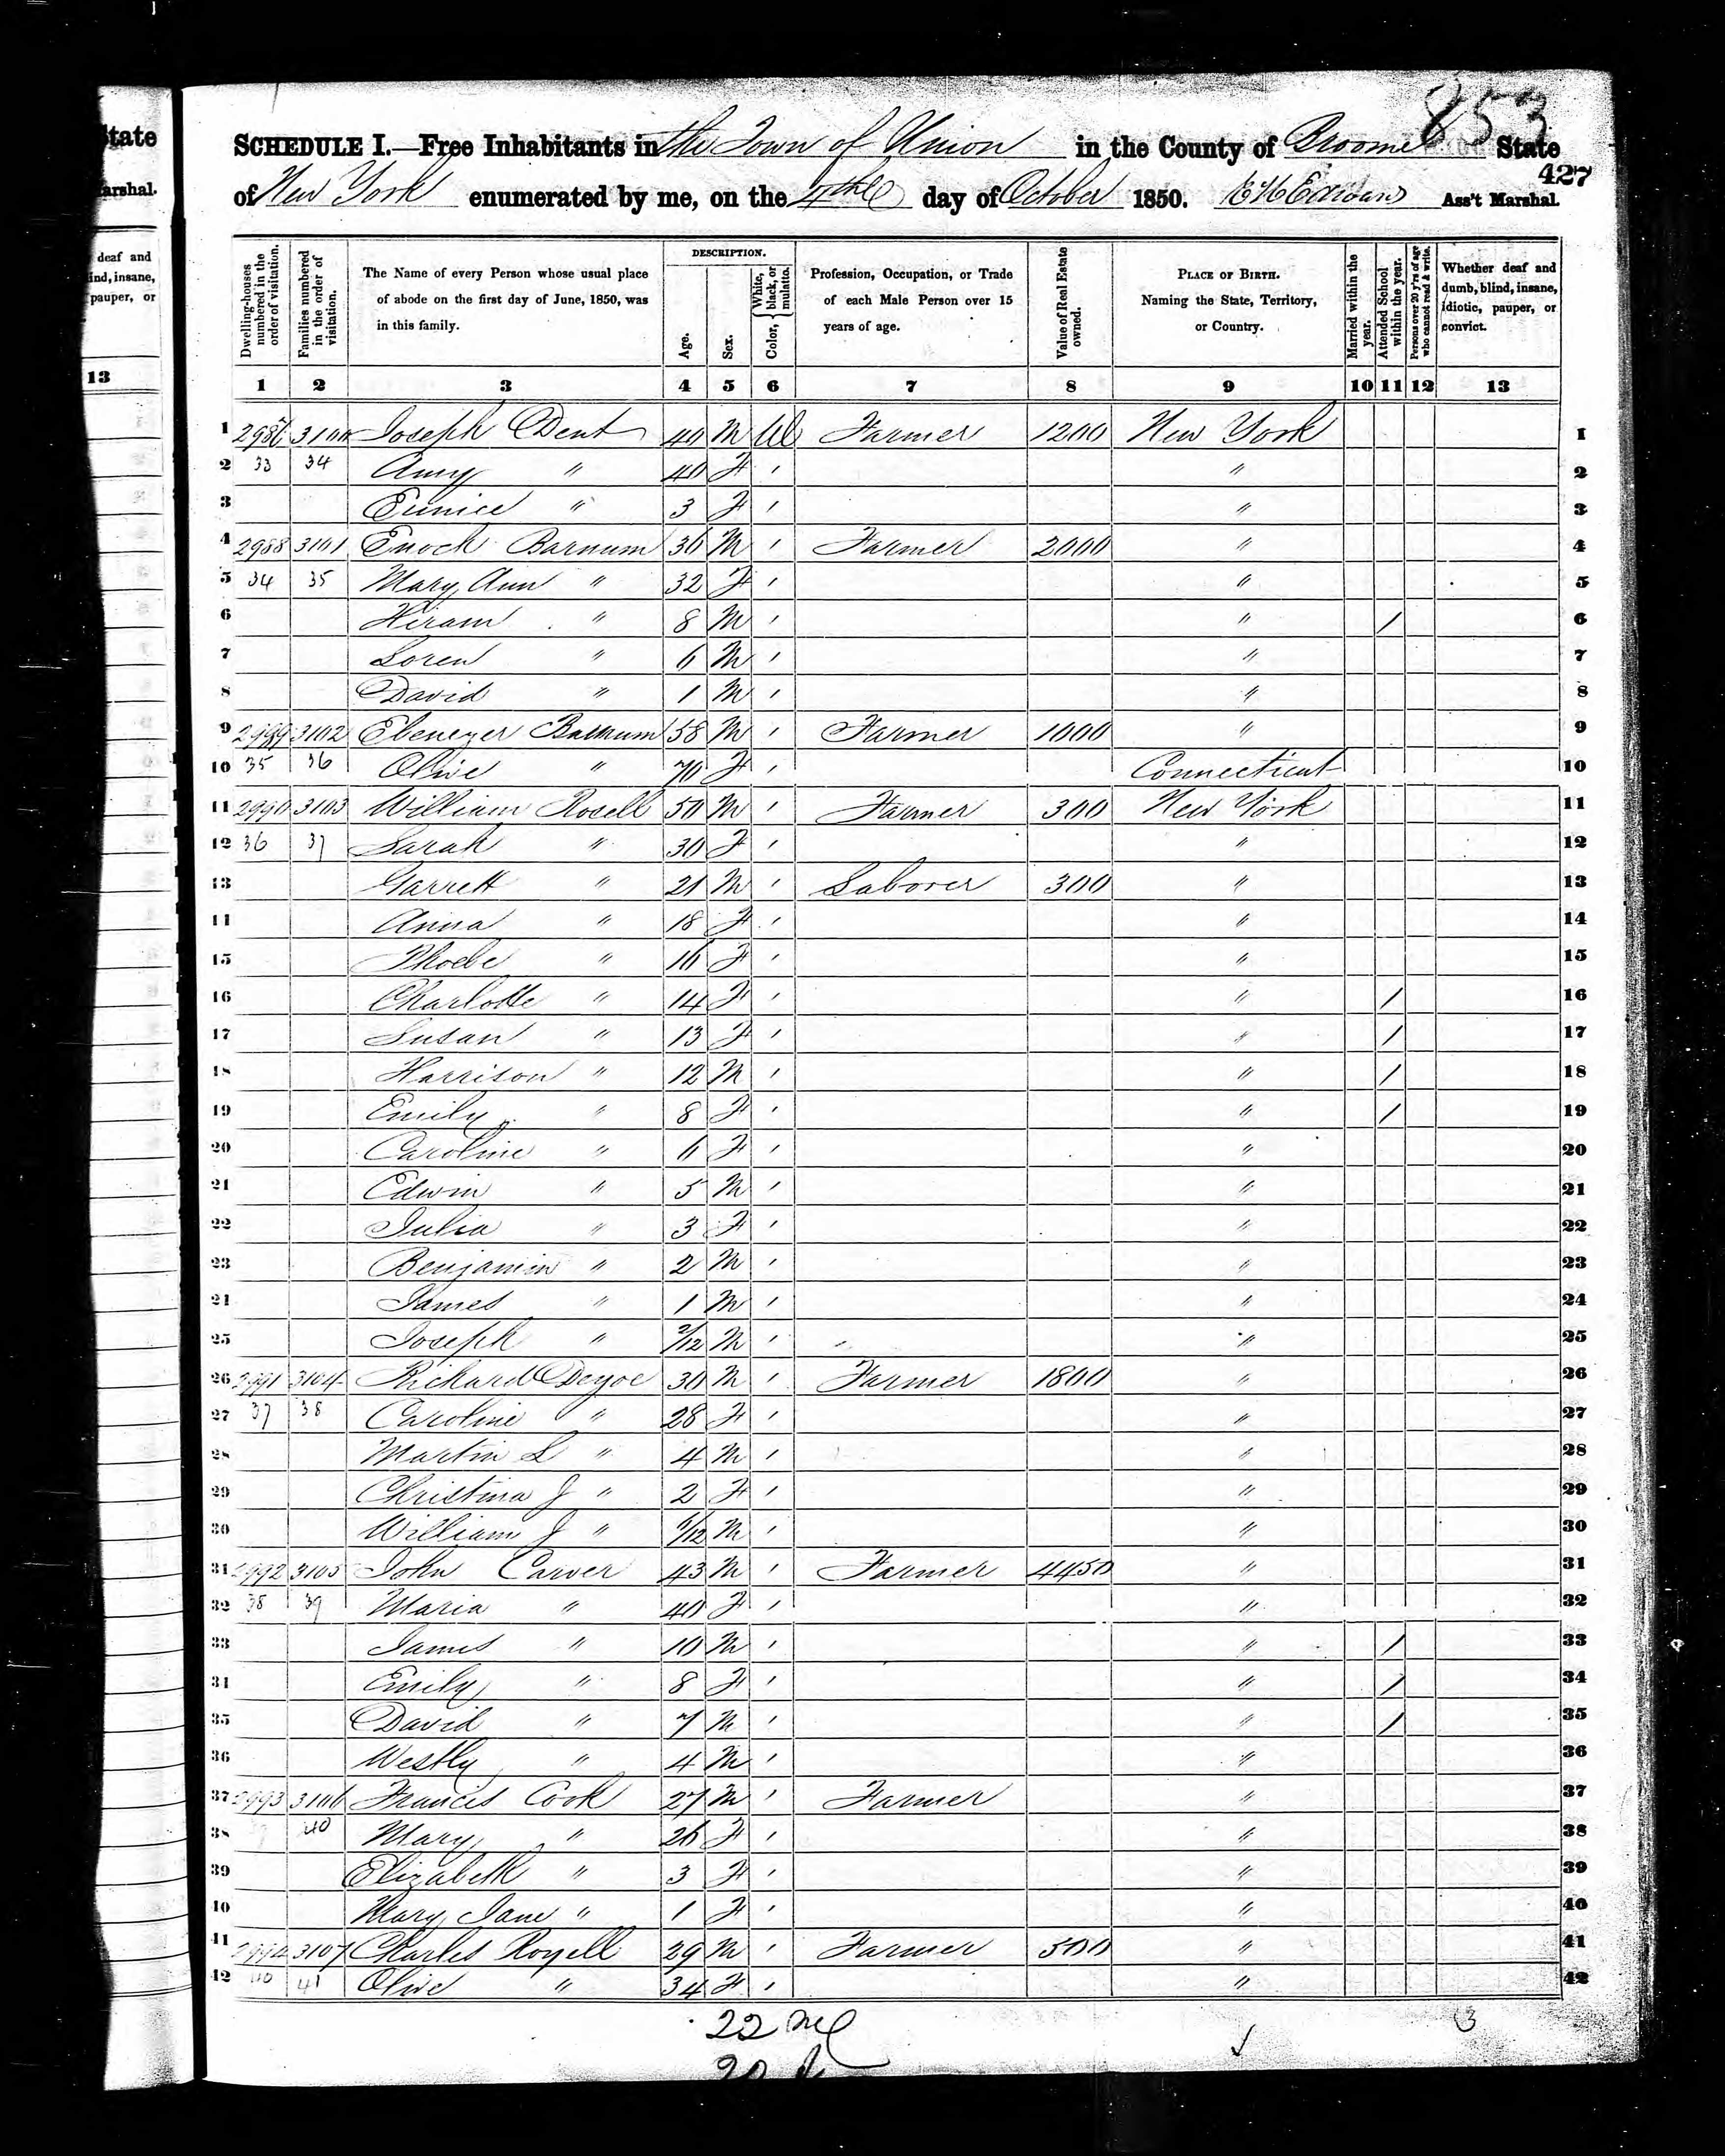 853
SCHEDULE I.—Free Inhabitants in the Town of Union in the County of Broome State
427
of New York enumerated by me, on the 4th day of October 1850. Ass't Marshal.
State
arshal.
deaf and
ind, insane,
pauper, or
13
Dwelling-houses numbered in the order of visitation.
Families numbered in the order of visitation.
The Name of every Person whose usual place of abode on the first day of June, 1850, was in this family.
DESCRIPTION.
Age.
Sex.
Color, { White, black, or mulatto.
Profession, Occupation, or Trade of each Male Person over 15 years of age.
Value of Real Estate owned.
PLACE OF BIRTH.
Naming the State, Territory, or Country.
Married within the year.
Attended School within the year.
Persons over 20 y'rs of age who cannot read & write.
Whether deaf and dumb, blind, insane, idiotic, pauper, or convict.
1 2 3 4 5 6 7 8 9 10 11 12 13
1 3100 Joseph Dent 40 M W Farmer 1200 New York 1
2 33 34 Amy " 40 F ' " 2
3 Eunice " 3 F ' " 3
4 2988 3101 Enoch Barnum 36 M ' Farmer 2000 " 4
5 34 35 Mary Ann " 32 F ' " 5
6 Hiram " 8 M ' " / 6
7 Loren " 6 M ' " 7
8 David " 1 M ' " 8
9 2989 3102 Ebenezer Barnum 58 M ' Farmer 1000 " 9
10 35 36 Olive " 70 F ' Connecticut 10
11 2990 3103 William Rosell 50 M ' Farmer 300 New York 11
12 36 37 Sarah " 30 F ' " 12
13 Garrett " 21 M ' Laborer 300 " 13
14 Anna " 18 F ' " 14
15 Phoebe " 16 F ' " 15
16 Charlotte " 14 F ' " / 16
17 Susan " 13 F ' " / 17
18 Harrison " 12 M ' " / 18
19 Emily " 8 F ' " / 19
20 Caroline " 6 F ' " 20
21 Edwin " 5 M ' " 21
22 Julia " 3 F ' " 22
23 Benjamin " 2 M ' " 23
24 James " 1 M ' " 24
25 Joseph " 2/12 M ' " 25
26 2991 3104 Richard Deyoe 30 M ' Farmer 1800 " 26
27 37 38 Caroline " 28 F ' " 27
28 Martin L " 4 M ' " 28
29 Christina J " 2 F ' " 29
30 William J " M ' " 30
31 2992 3105 John Carver 43 M ' Farmer 4450 " 31
32 38 39 Maria " 40 F ' " 32
33 James " 10 M ' " / 33
34 Emily " 8 F ' " / 34
35 David " 7 M ' " / 35
36 Westly " 4 M ' " 36
37 2993 3106 Francis Cook 27 M ' Farmer " 37
38 40 Mary " 26 F ' " 38
39 Elizabeth " 3 F ' " 39
40 Mary Jane " 1 F ' " 40
41 2994 3107 Charles Rozell 29 M ' Farmer 500 " 41
42 40 41 Olive " 34 F ' " 42
22 M
20